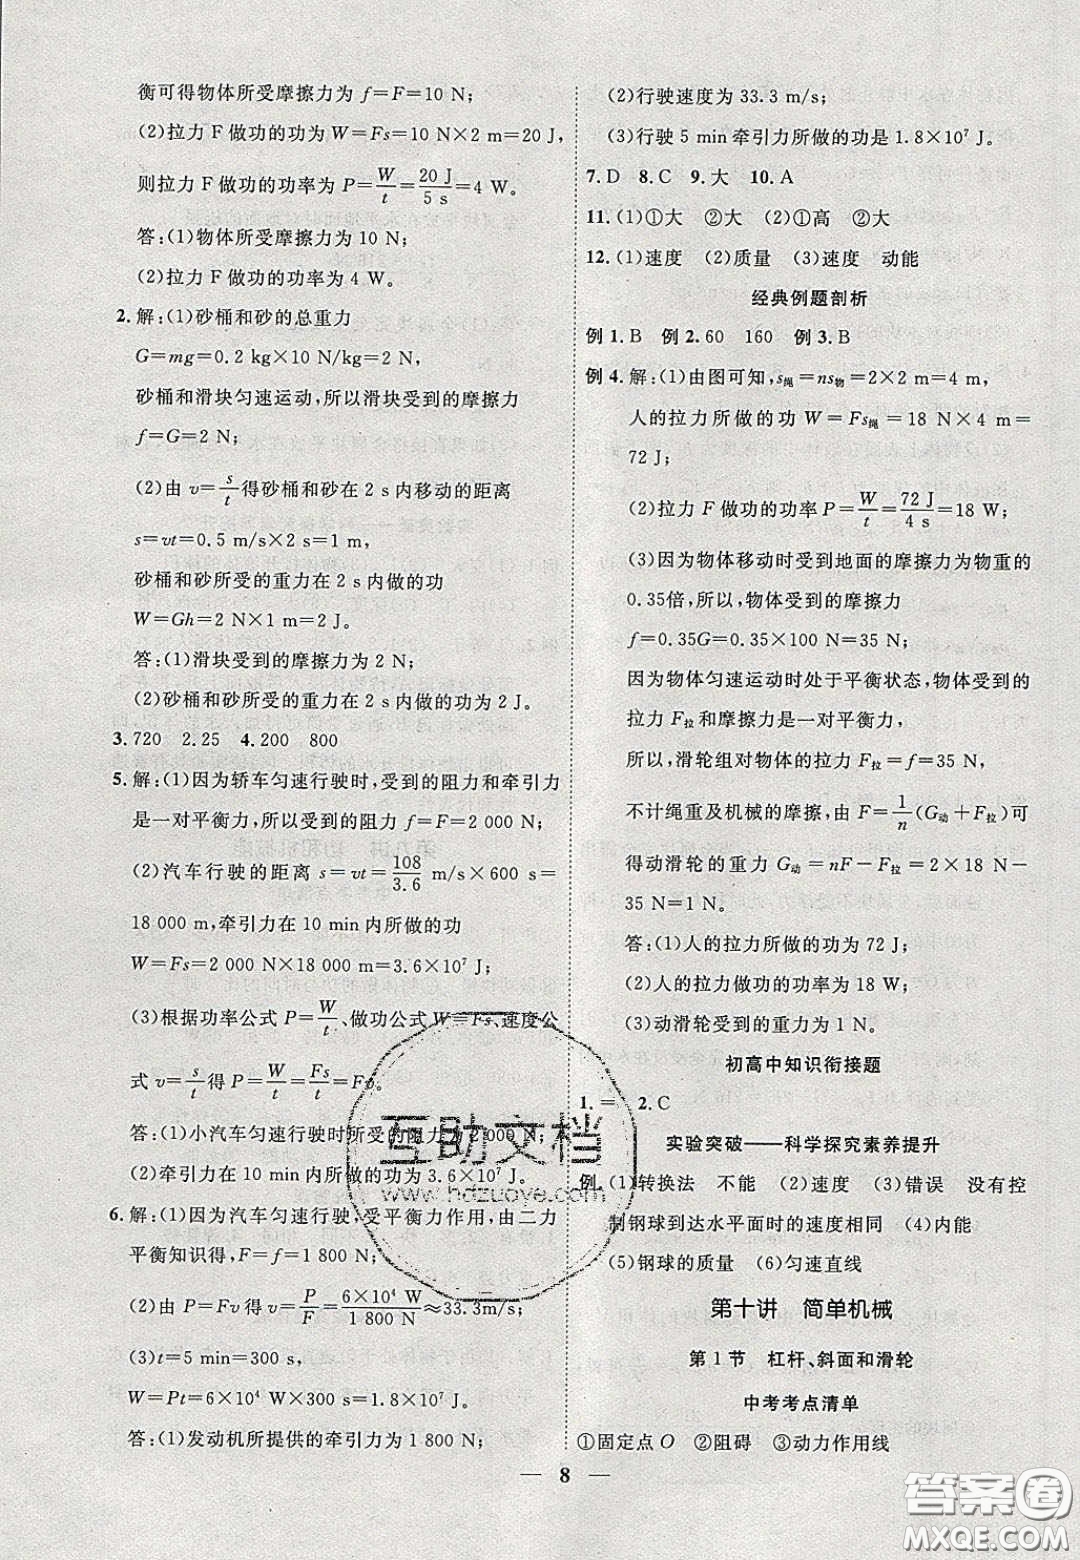 衡可得物体所受摩擦力为 f=F=10 N；
(2)拉力 F 做功的功为 W=Fs=10 N×2 m=20 J，
则拉力 F 做功的功率为 P=W/t=20 J/5 s=4 W。
答：(1)物体所受摩擦力为 10 N；
(2)拉力 F 做功的功率为 4 W。
2. 解：(1)砂桶和砂的总重力
G=mg=0.2 kg×10 N/kg=2 N，
砂桶和滑块匀速运动，所以滑块受到的摩擦力
f=G=2 N；
(2)由 v=s/t得砂桶和砂在 2 s 内移动的距离
s=vt=0.5 m/s×2 s=1 m，
砂桶和砂所受的重力在 2 s 内做的功
W=Gh=2 N×1 m=2 J。
答：(1)滑块受到的摩擦力为 2 N；
(2)砂桶和砂所受的重力在 2 s 内做的功为 2 J。
3. 720 2.25 4. 200 800
5. 解：(1)因为轿车匀速行驶时，受到的阻力和牵引力
是一对平衡力，所以受到的阻力 f=F=2 000 N；
(2)汽车行驶的距离 s=vt=108/3.6 m/s×600 s=
18 000 m，牵引力在 10 min 内所做的功
W=Fs=2 000 N×18 000 m=3.6×10⁷ J；
(3)根据功率公式 P=W/t、做功公式 W=Fs、速度公
式 v=s/t得 P=W/t=Fs/t=Fv。
答：(1)小汽车匀速行驶时所受的阻力为 2 000 N；
(2)牵引力在 10 min 内所做的功为 3.6×10⁷ J。
6. 解：(1)因为汽车匀速行驶，受平衡力作用，由二力
平衡知识得，F=f=1 800 N；
(2)由 P=Fv 得 v=P/F=6×10⁴ W/1 800 N≈33.3m/s；
(3)t=5 min=300 s，
W=Pt=6×10⁴ W×300 s=1.8×10⁷ J。
答：(1)发动机所提供的牵引力为 1 800 N；
(2)行驶速度为 33.3 m/s；
(3)行驶 5 min 牵引力所做的功是 1.8×10⁷ J。
7. D 8. C 9. 大 10. A
11. (1)①大 ②大 (2)①高 ②大
12. (1)速度 (2)质量 (3)速度 动能
经典例题剖析
例 1. B 例 2. 60 160 例 3. B
例 4. 解：(1)由图可知，s绳=ns物=2×2 m=4 m，
人的拉力所做的功 W=Fs绳=18 N×4 m=
72 J；
(2)拉力 F 做功的功率 P=W/t=72 J/4 s=18 W；
(3)因为物体移动时受到地面的摩擦力为物重的
0.35倍，所以，物体受到的摩擦力
f=0.35G=0.35×100 N=35 N；
因为物体匀速运动时处于平衡状态，物体受到的
拉力 F拉和摩擦力是一对平衡力，
所以，滑轮组对物体的拉力 F拉=f=35 N，
不计绳重及机械的摩擦，由 F=1/n(G动+F拉)可
得动滑轮的重力 G动=nF−F拉=2×18 N−
35 N=1 N。
答：(1)人的拉力所做的功为 72 J；
(2)人的拉力做功的功率为 18 W；
(3)动滑轮受到的重力为 1 N。
初高中知识衔接题
1. = = 2. C
实验突破——科学探究素养提升
例. (1)转换法 不能 (2)速度 (3)错误 没有控
制钢球到达水平面时的速度相同 (4)内能
(5)钢球的质量 (6)匀速直线
第十讲 简单机械
第 1 节 杠杆、斜面和滑轮
中考考点清单
①固定点 O ②阻碍 ③动力作用线
— 8 —
互助文档
www.hdzuoye.com
答案圈
MXQE.COM